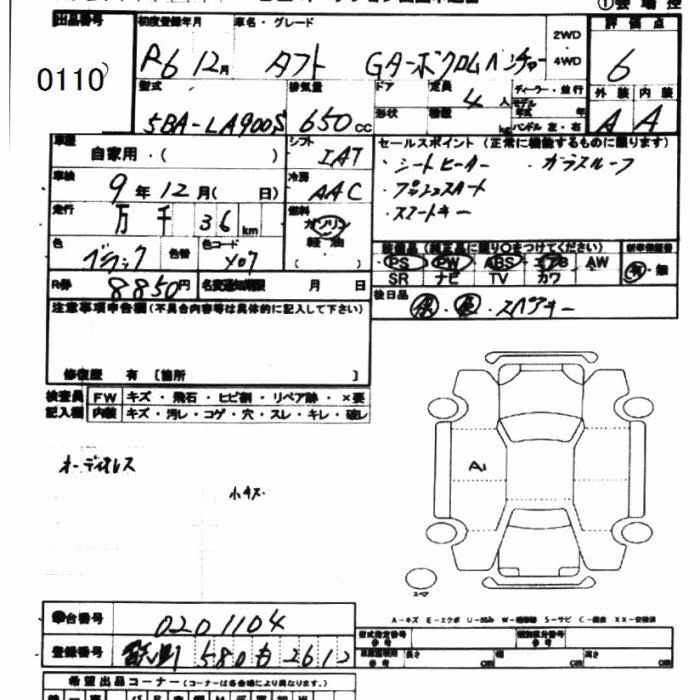 出品番号 初度登録年月 車名・グレード 評価点
0110
R6 12月 タフト Gターボクロムベンチャー 2WD 4WD 6
型式 排気量 ドア 定員 ディーラー・並行 外装 内装
5BA-LA900S 650cc 形状 4人 ハンドル 左・右 A A
車歴 自家用・( ) シフト IAT
セールスポイント (正常に機能するものに限ります)
・シートヒーター ・ガラスルーフ
・プッシュスタート
・スマートキー
車検 9年12月( 日) 冷房 AAC
走行 万 千 36 km 燃料 ガソリン 軽油 ( )
色 ブラック 色替 色コード X07
装備品 (純正品に限り○をつけてください) 新車保証書
PS PW ABS エアB AW 有・無
SR ナビ TV カワ
R券 8850円 名変通知期限 月 日
後日品 保・取・スペアキー
注意事項申告欄(不具合内容等は具体的に記入して下さい)
修復歴 有 [箇所 ]
検査員 記入欄 FW キズ・飛石・ヒビ割・リペア跡・×要
内装 キズ・汚レ・コゲ・穴・スレ・キレ・破レ
オーディオレス
小キズ
A1
スペア
A-キズ E-エクボ U-凹み W-補修跡 S-サビ C-腐食 XX-交換済
車台番号 0201104
型式指定番号 類別区分番号
登録番号 580 2612
長さ cm 幅 cm 高さ cm
希望出品コーナー (コーナーは各会場により異なります。)